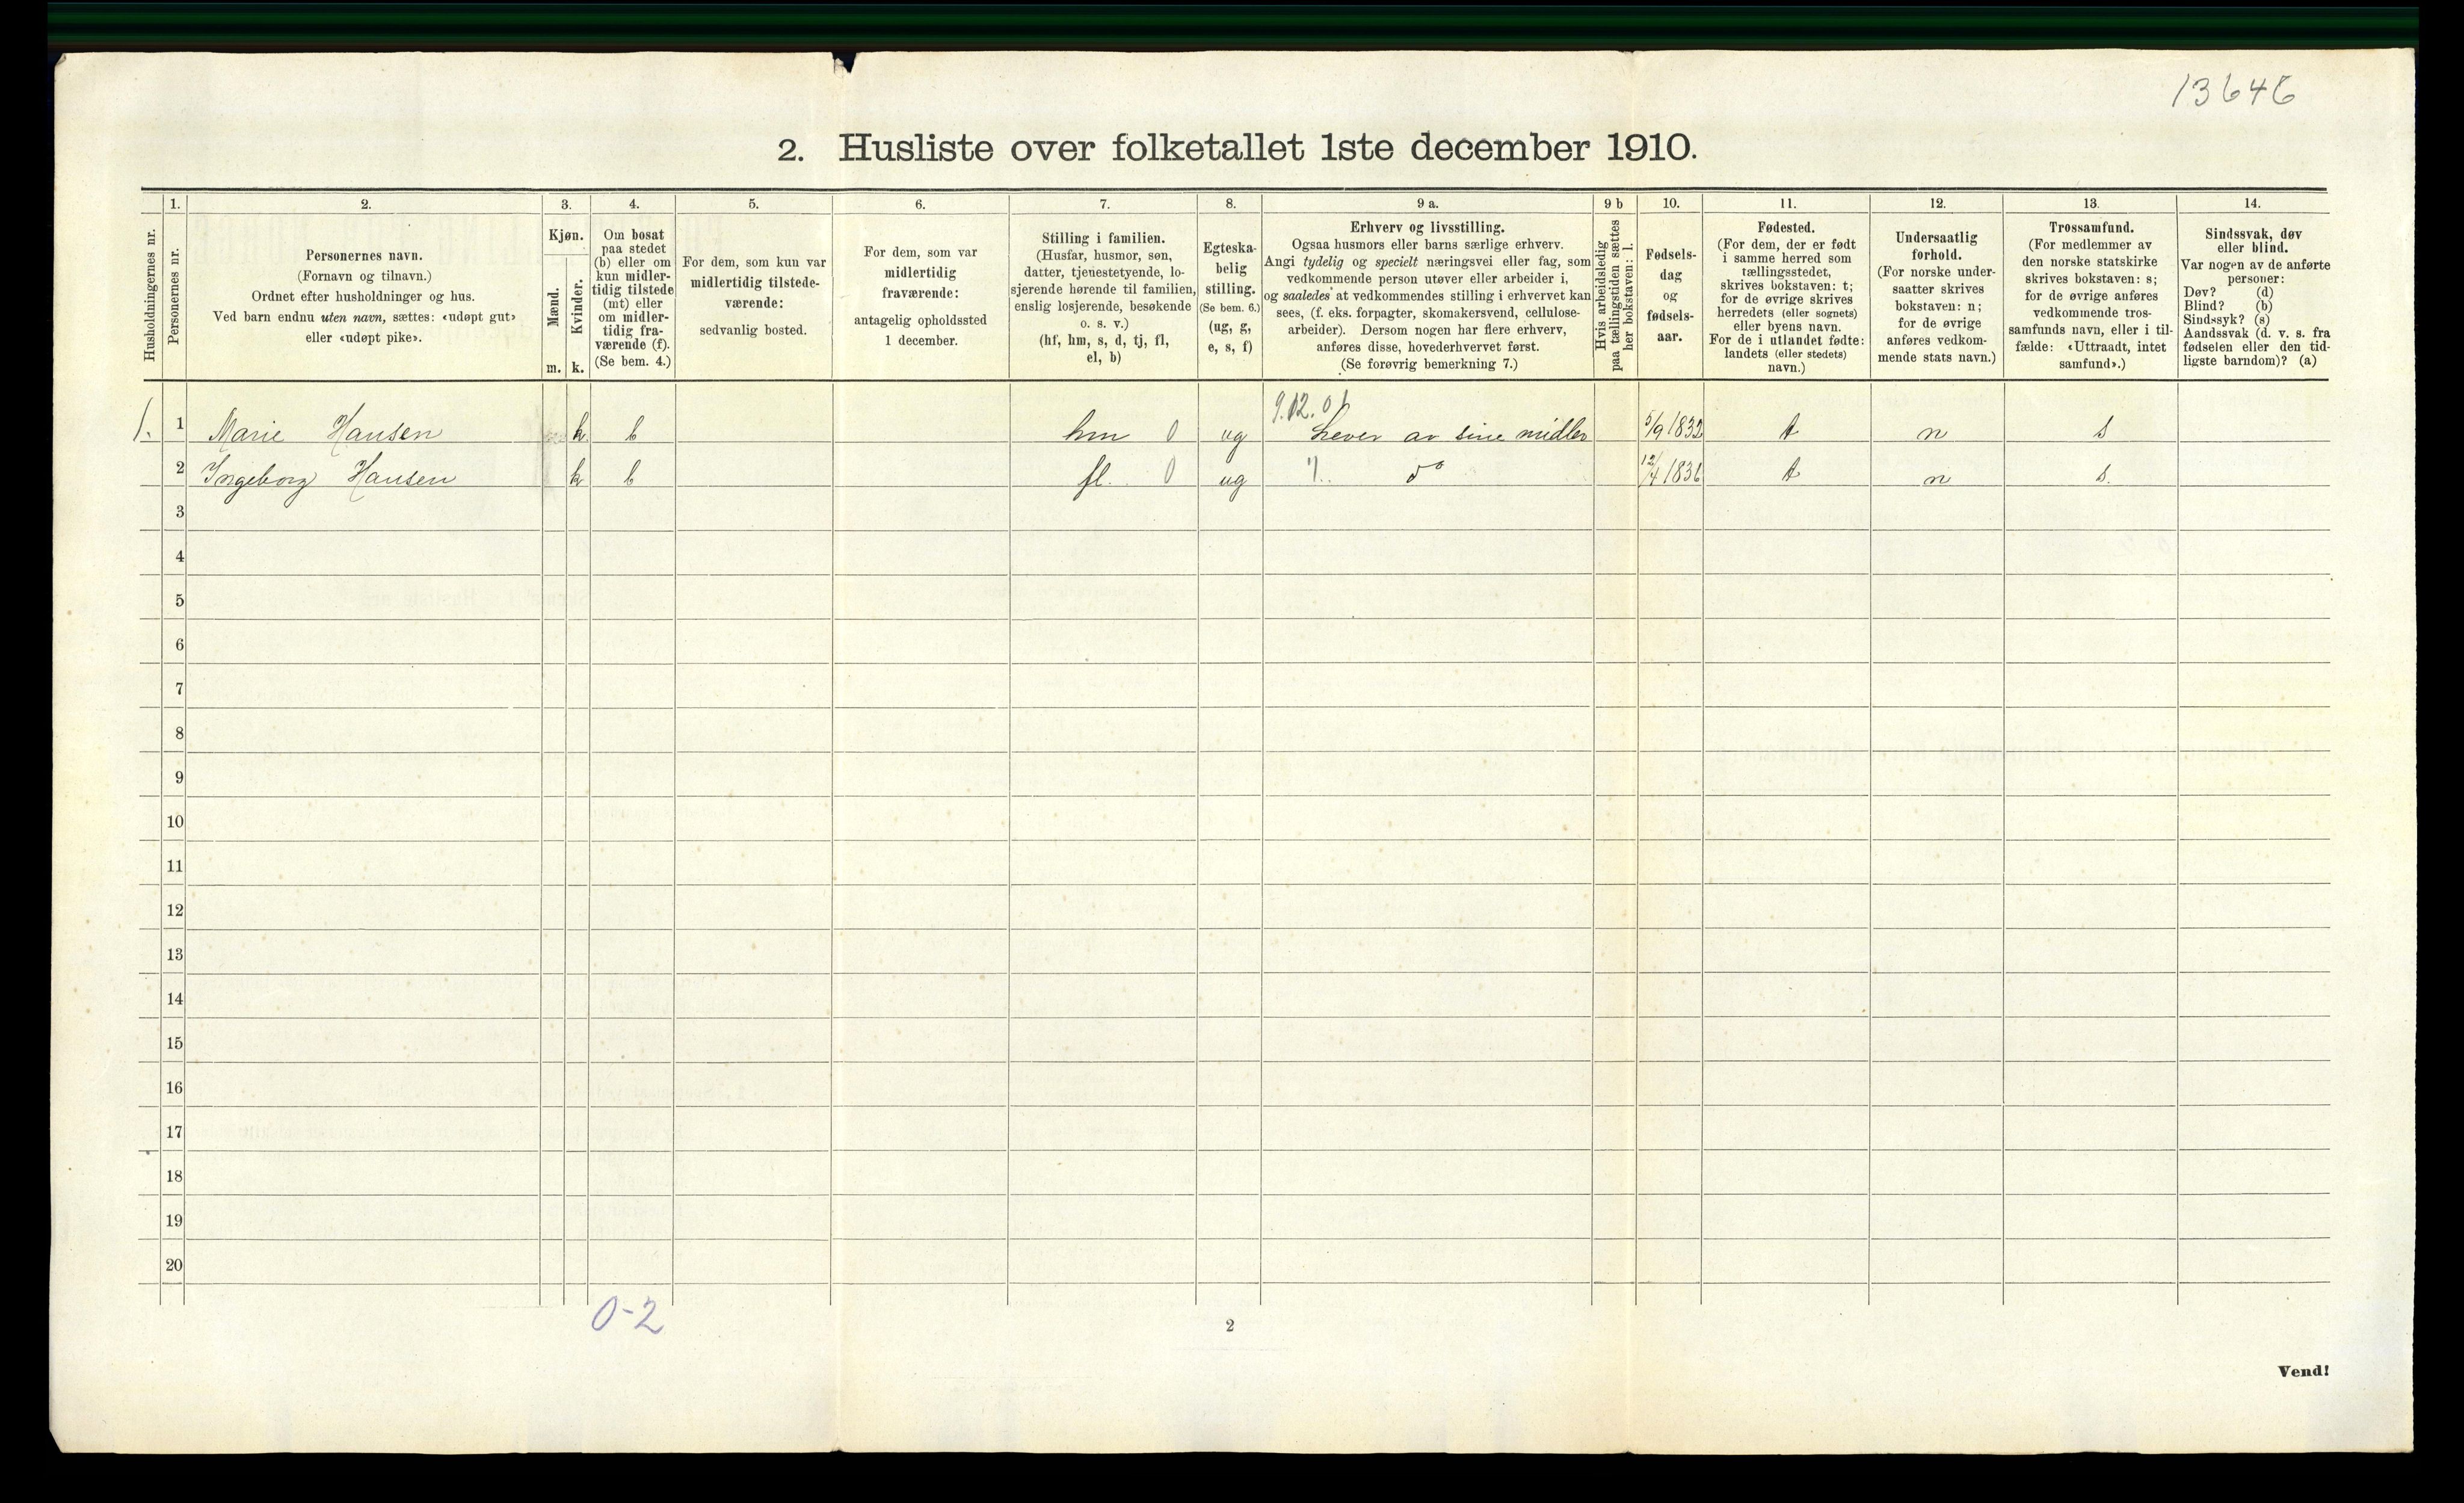 13646
2. Husliste over folketallet 1ste december 1910.
1. 2. 3. 4. 5. 6. 7. 8. 9 a. 9 b 10. 11. 12. 13. 14.
Husholdningernes nr.
Personernes nr.
Personernes navn.
(Fornavn og tilnavn.)
Ordnet efter husholdninger og hus.
Ved barn endnu uten navn, sættes: «udøpt gut»
eller «udøpt pike».
Kjøn.
Mænd.
Kvinder.
m. k.
Om bosat
paa stedet
(b) eller om
kun midler-
tidig tilstede
(mt) eller
om midler-
tidig fra-
værende (f).
(Se bem. 4.)
For dem, som kun var
midlertidig tilstede-
værende:
sedvanlig bosted.
For dem, som var
midlertidig
fraværende:
antagelig opholdssted
1 december.
Stilling i familien.
(Husfar, husmor, søn,
datter, tjenestetyende, lo-
sjerende hørende til familien,
enslig losjerende, besøkende
o. s. v.)
(hf, hm, s, d, tj, fl,
el, b)
Egteska-
belig
stilling.
(Se bem. 6.)
(ug, g,
e, s, f)
Erhverv og livsstilling.
Ogsaa husmors eller barns særlige erhverv.
Angi tydelig og specielt næringsvei eller fag, som
vedkommende person utøver eller arbeider i,
og saaledes at vedkommendes stilling i erhvervet kan
sees, (f. eks. forpagter, skomakersvend, cellulose-
arbeider). Dersom nogen har flere erhverv,
anføres disse, hovederhvervet først.
(Se forøvrig bemerkning 7.)
Hvis arbeidsledig
paa tællingstiden sættes
her bokstaven: l.
Fødsels-
dag
og
fødsels-
aar.
Fødested.
(For dem, der er født
i samme herred som
tællingsstedet,
skrives bokstaven: t;
for de øvrige skrives
herredets (eller sognets)
eller byens navn.
For de i utlandet fødte:
landets (eller stedets)
navn.)
Undersaatlig
forhold.
(For norske under-
saatter skrives
bokstaven: n;
for de øvrige
anføres vedkom-
mende stats navn.)
Trossamfund.
(For medlemmer av
den norske statskirke
skrives bokstaven: s;
for de øvrige anføres
vedkommende tros-
samfunds navn, eller i til-
fælde: «Uttraadt, intet
samfund».)
Sindssvak, døv
eller blind.
Var nogen av de anførte
personer:
Døv? (d)
Blind? (b)
Sindssyk? (s)
Aandssvak (d. v. s. fra
fødselen eller den tid-
ligste barndom)? (a)
9.12.01
1. 1 Marie Hansen k b hm 0 ug Lever av sine midler 5/9 1832 t n s
2 Ingeborg Hansen k b fl. 0 ug ". do 12/4 1836 t n s.
3
4
5
6
7
8
9
10
11
12
13
14
15
16
17
18
19
20
0-2
2
Vend!